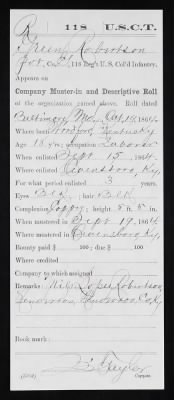 R 118 U.S.C.T.
Green Robertson
Pvt., Co. , 118 Reg't U. S. Col'd Infantry,
Appears on
Company Muster-in and Descriptive Roll
of the organization named above. Roll dated
Baltimore, Md., Oct 19, 1864.
Where born Kentucky
Age 18 y'rs; occupation Laborer
When enlisted Sept. 15, 1864.
Where enlisted Owensboro, Ky.
For what period enlisted 3 years.
Eyes Blk; hair Blk
Complexion Copper; height 5 ft. 5 in.
When mustered in Sept. 19, 1864
Where mustered in Owensboro, Ky.
Bounty paid $ 100; due $ 100
Where credited
Company to which assigned
Remarks: Robertson,
Co Ky
Book mark:
Copyist.